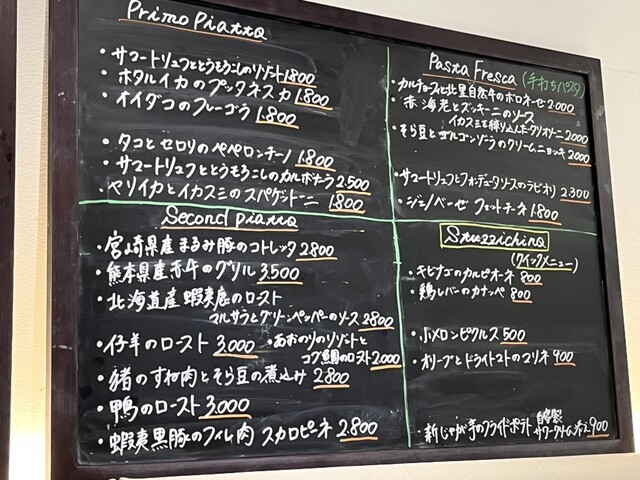 Primo Piatto
・サマートリュフととうもろこしのリゾット 1.800
・ホタルイカのプッタネスカ 1.800
・イイダコのフレーゴラ 1.800
・タコとセロリのペペロンチーノ 1.800
・サマートリュフととうもろこしのカルボナーラ 2.500
・ヤリイカとイカスミのスパゲットーニ 1.800
Second piatto
・宮崎県産まるみ豚のコトレッタ 2.800
・熊本県産赤牛のグリル 3.500
・北海道産 蝦夷鹿のロースト
マルサラとグリーンペッパーのソース 2.800
・仔羊のロースト 3.000
・あおのりのリゾットと
コブ鯛のロースト 2.000
・猪のすね肉とそら豆の煮込み 2.800
・鴨のロースト 3.000
・蝦夷黒豚のフィレ肉 スカロピーネ 2.800
Pasta Fresca (手打ちパスタ)
・カルチョーフと北里自然牛のボロネーゼ 2.000
・赤海老とズッキーニのソース
イカスミを練り込んだタリオリーニ 2.000
・そら豆とゴルゴンゾーラのクリームニョッキ 2.000
・サマートリュフとフォンデュータソースのラビオリ 2.300
・ジェノベーゼ フェットチーネ 1.800
Stuzzichino
(クイックメニュー)
・キビナゴのカルピオーネ 800
・鶏レバーのカナッペ 800
・小メロンピクルス 500
・オリーブとドライトマトのマリネ 900
・新じゃが芋のフライドポテト 自家製
サワークリーム添え 900